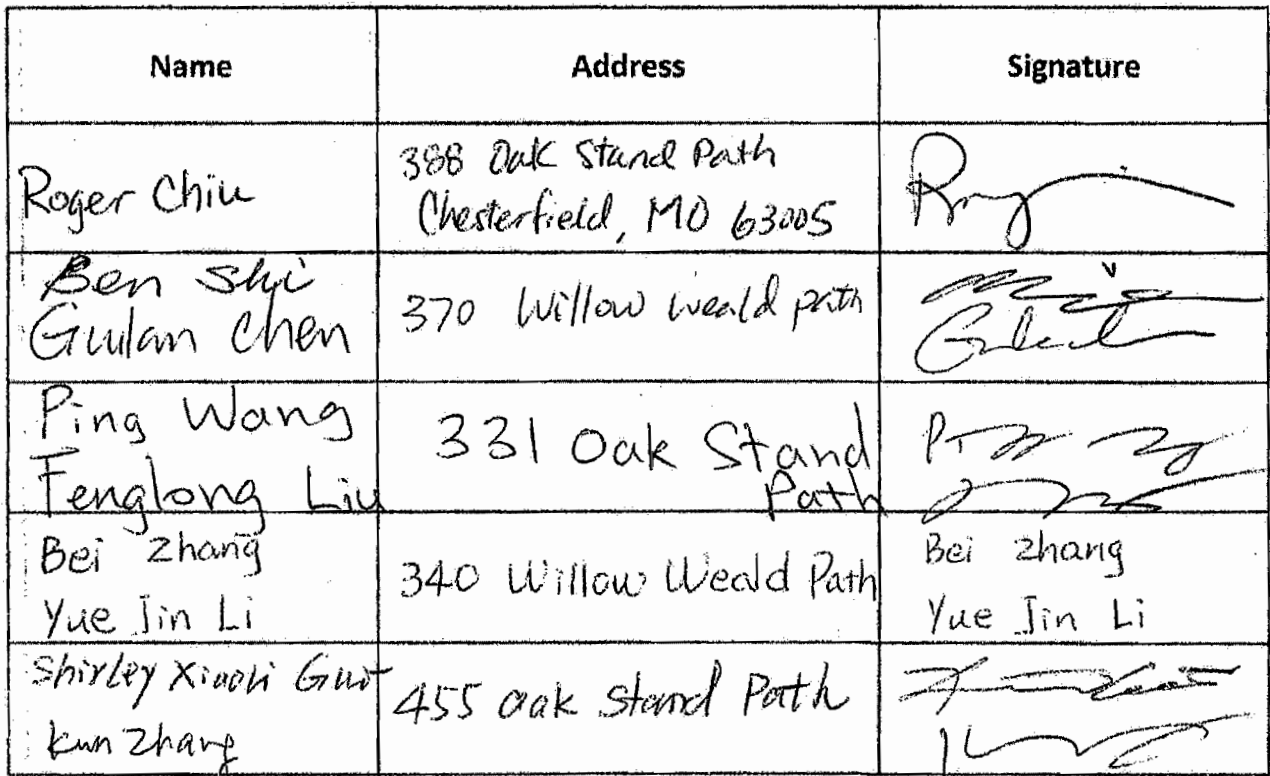 Name Address Signature
Roger Chiu
388 Oak Stand Path
Chesterfield, MO 63005
Ben Shi
Guilan Chen
370 Willow Weald path
Ping Wang
Fenglong Liu
331 Oak Stand
Path
Bei Zhang
Yue Jin Li
340 Willow Weald Path
Bei Zhang
Yue Jin Li
Shirley Xiaoli Guo
Kun Zhang
455 Oak Stand Path